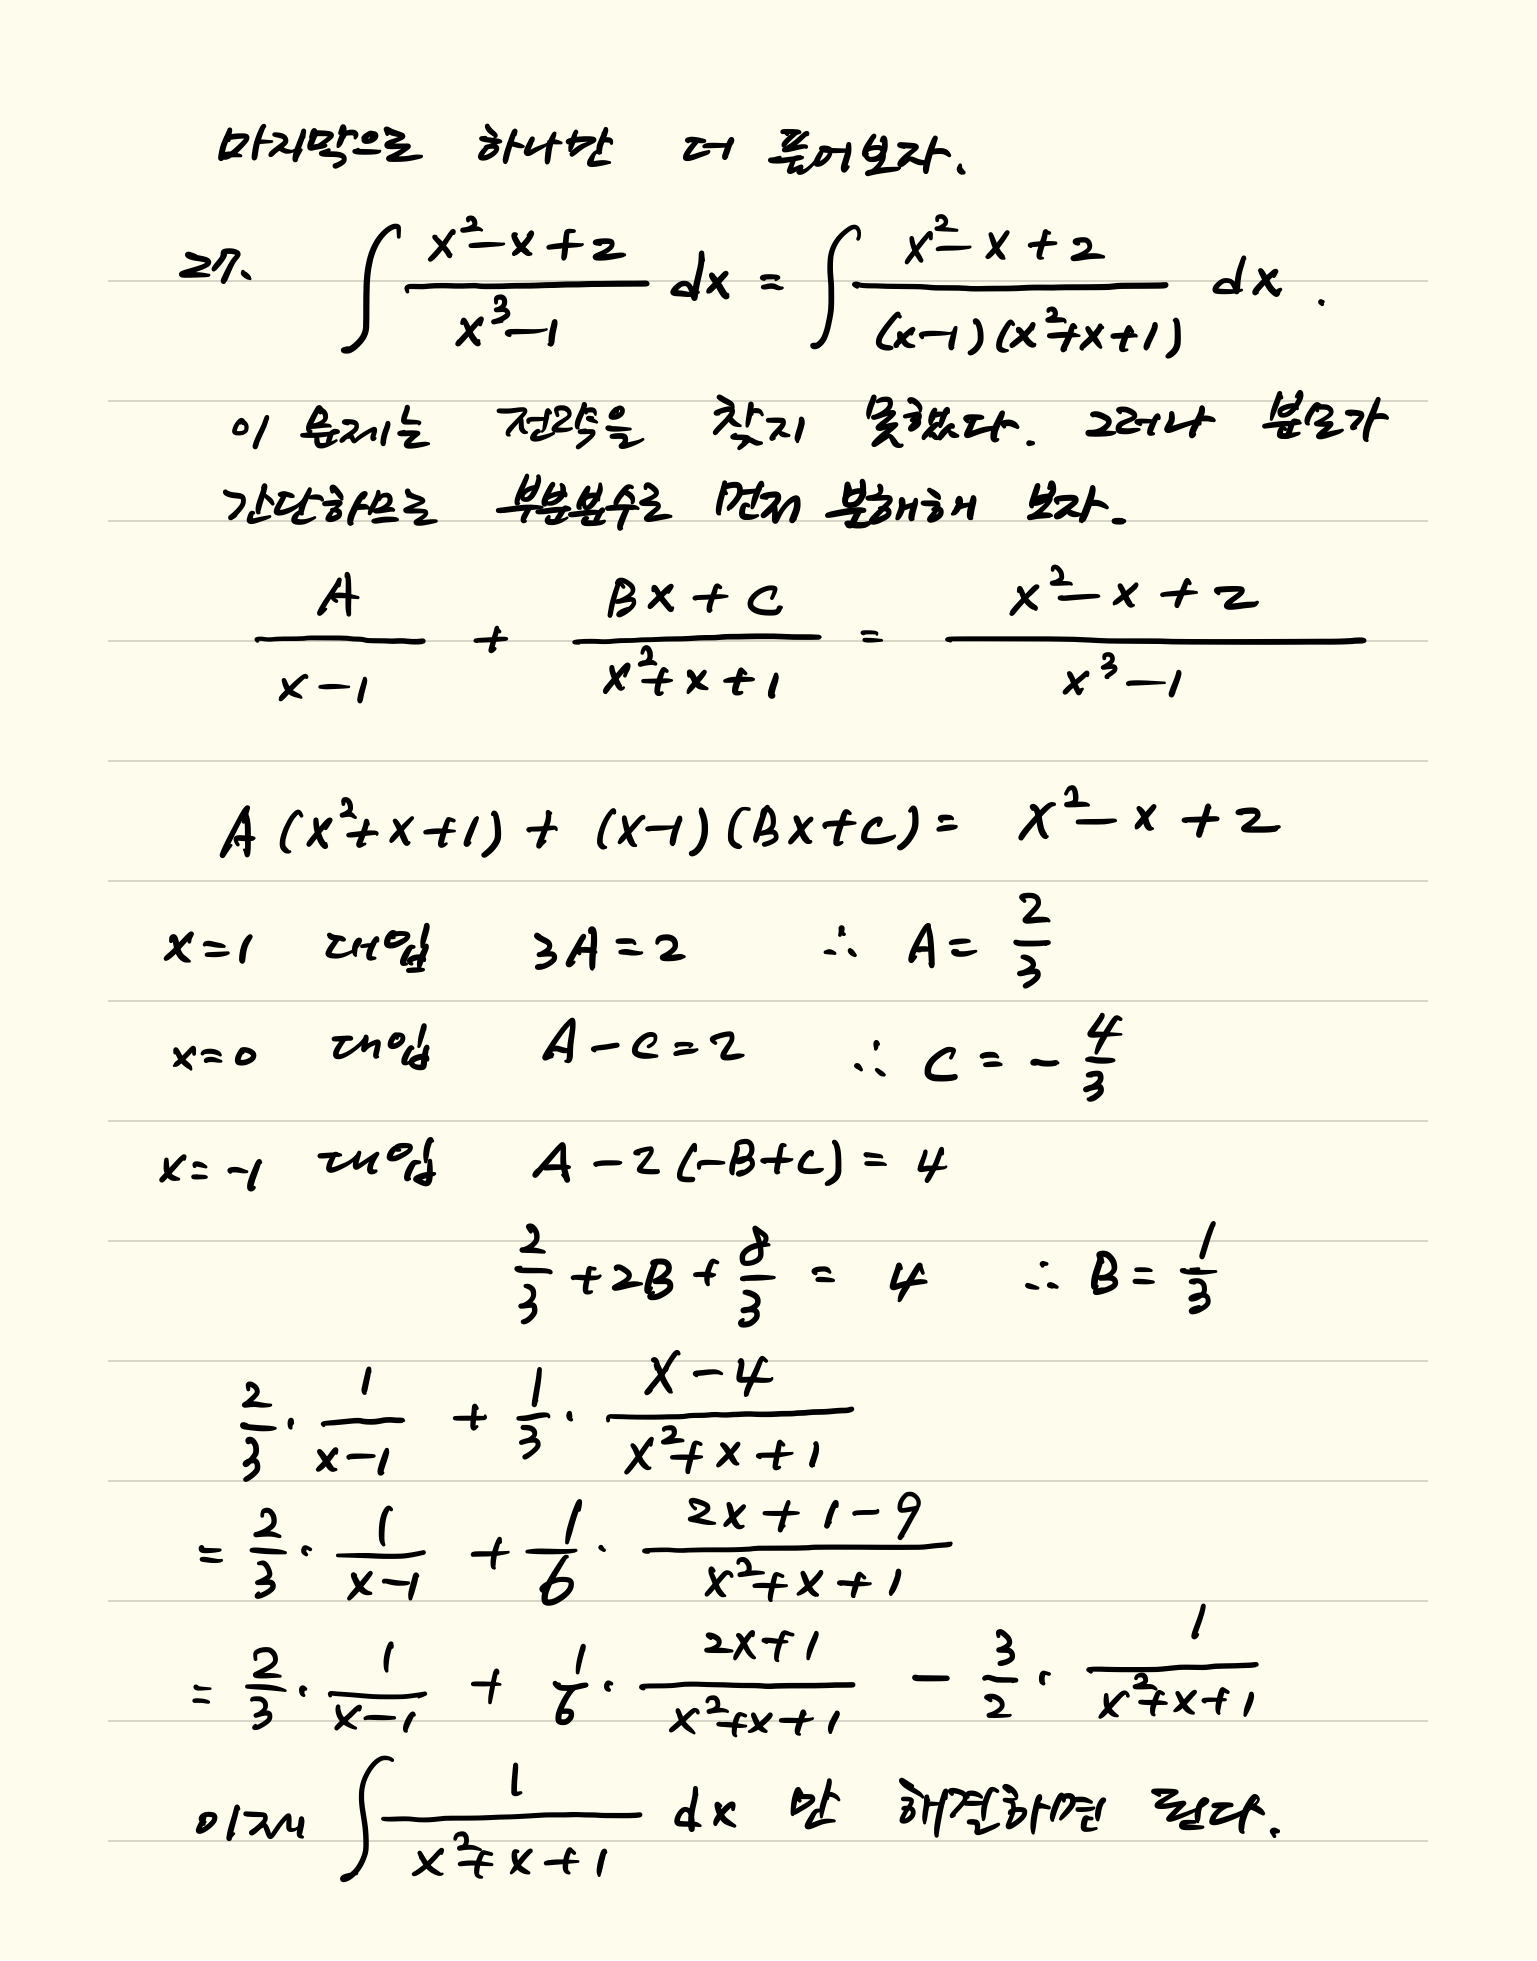 마지막으로 하나만 더 풀어보자.
27. ∫ (x²-x+2)/(x³-1) dx = ∫ (x²-x+2)/((x-1)(x²+x+1)) dx .
이 문제는 전략을 찾지 못했다. 그러나 분모가
간단하므로 부분분수로 먼저 분해해 보자.
A/(x-1) + (Bx+C)/(x²+x+1) = (x²-x+2)/(x³-1)
A(x²+x+1) + (x-1)(Bx+C) = x²-x+2
x=1 대입 3A=2 ∴ A= 2/3
x=0 대입 A-C=2 ∴ C = - 4/3
x=-1 대입 A-2(-B+C) = 4
2/3 +2B+ 8/3 = 4 ∴ B= 1/3
2/3 · 1/(x-1) + 1/3 · (x-4)/(x²+x+1)
= 2/3 · 1/(x-1) + 1/6 · (2x+1-9)/(x²+x+1)
= 2/3 · 1/(x-1) + 1/6 · (2x+1)/(x²+x+1) - 3/2 · 1/(x²+x+1)
이제 ∫ 1/(x²+x+1) dx 만 해결하면 된다.